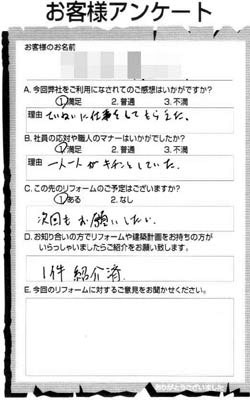 お客様アンケート
お客様のお名前
A. 今回弊社をご利用になされてのご感想はいかがですか?
①満足 2. 普通 3. 不満
理由 ていねいに仕事をしてもらえた。
B. 社員の応対や職人のマナーはいかがでしたか?
①満足 2. 普通 3. 不満
理由 一人一人がキチンとしていた。
C. この先のリフォームのご予定はございますか?
①ある 2. なし
次回もお願いしたい。
D. お知り合いの方でリフォームや建築計画をお持ちの方が
いらっしゃいましたらご紹介をお願い致します。
1件 紹介済.
E. 今回のリフォームに対するご意見をお聞かせください。
ありがとうございました